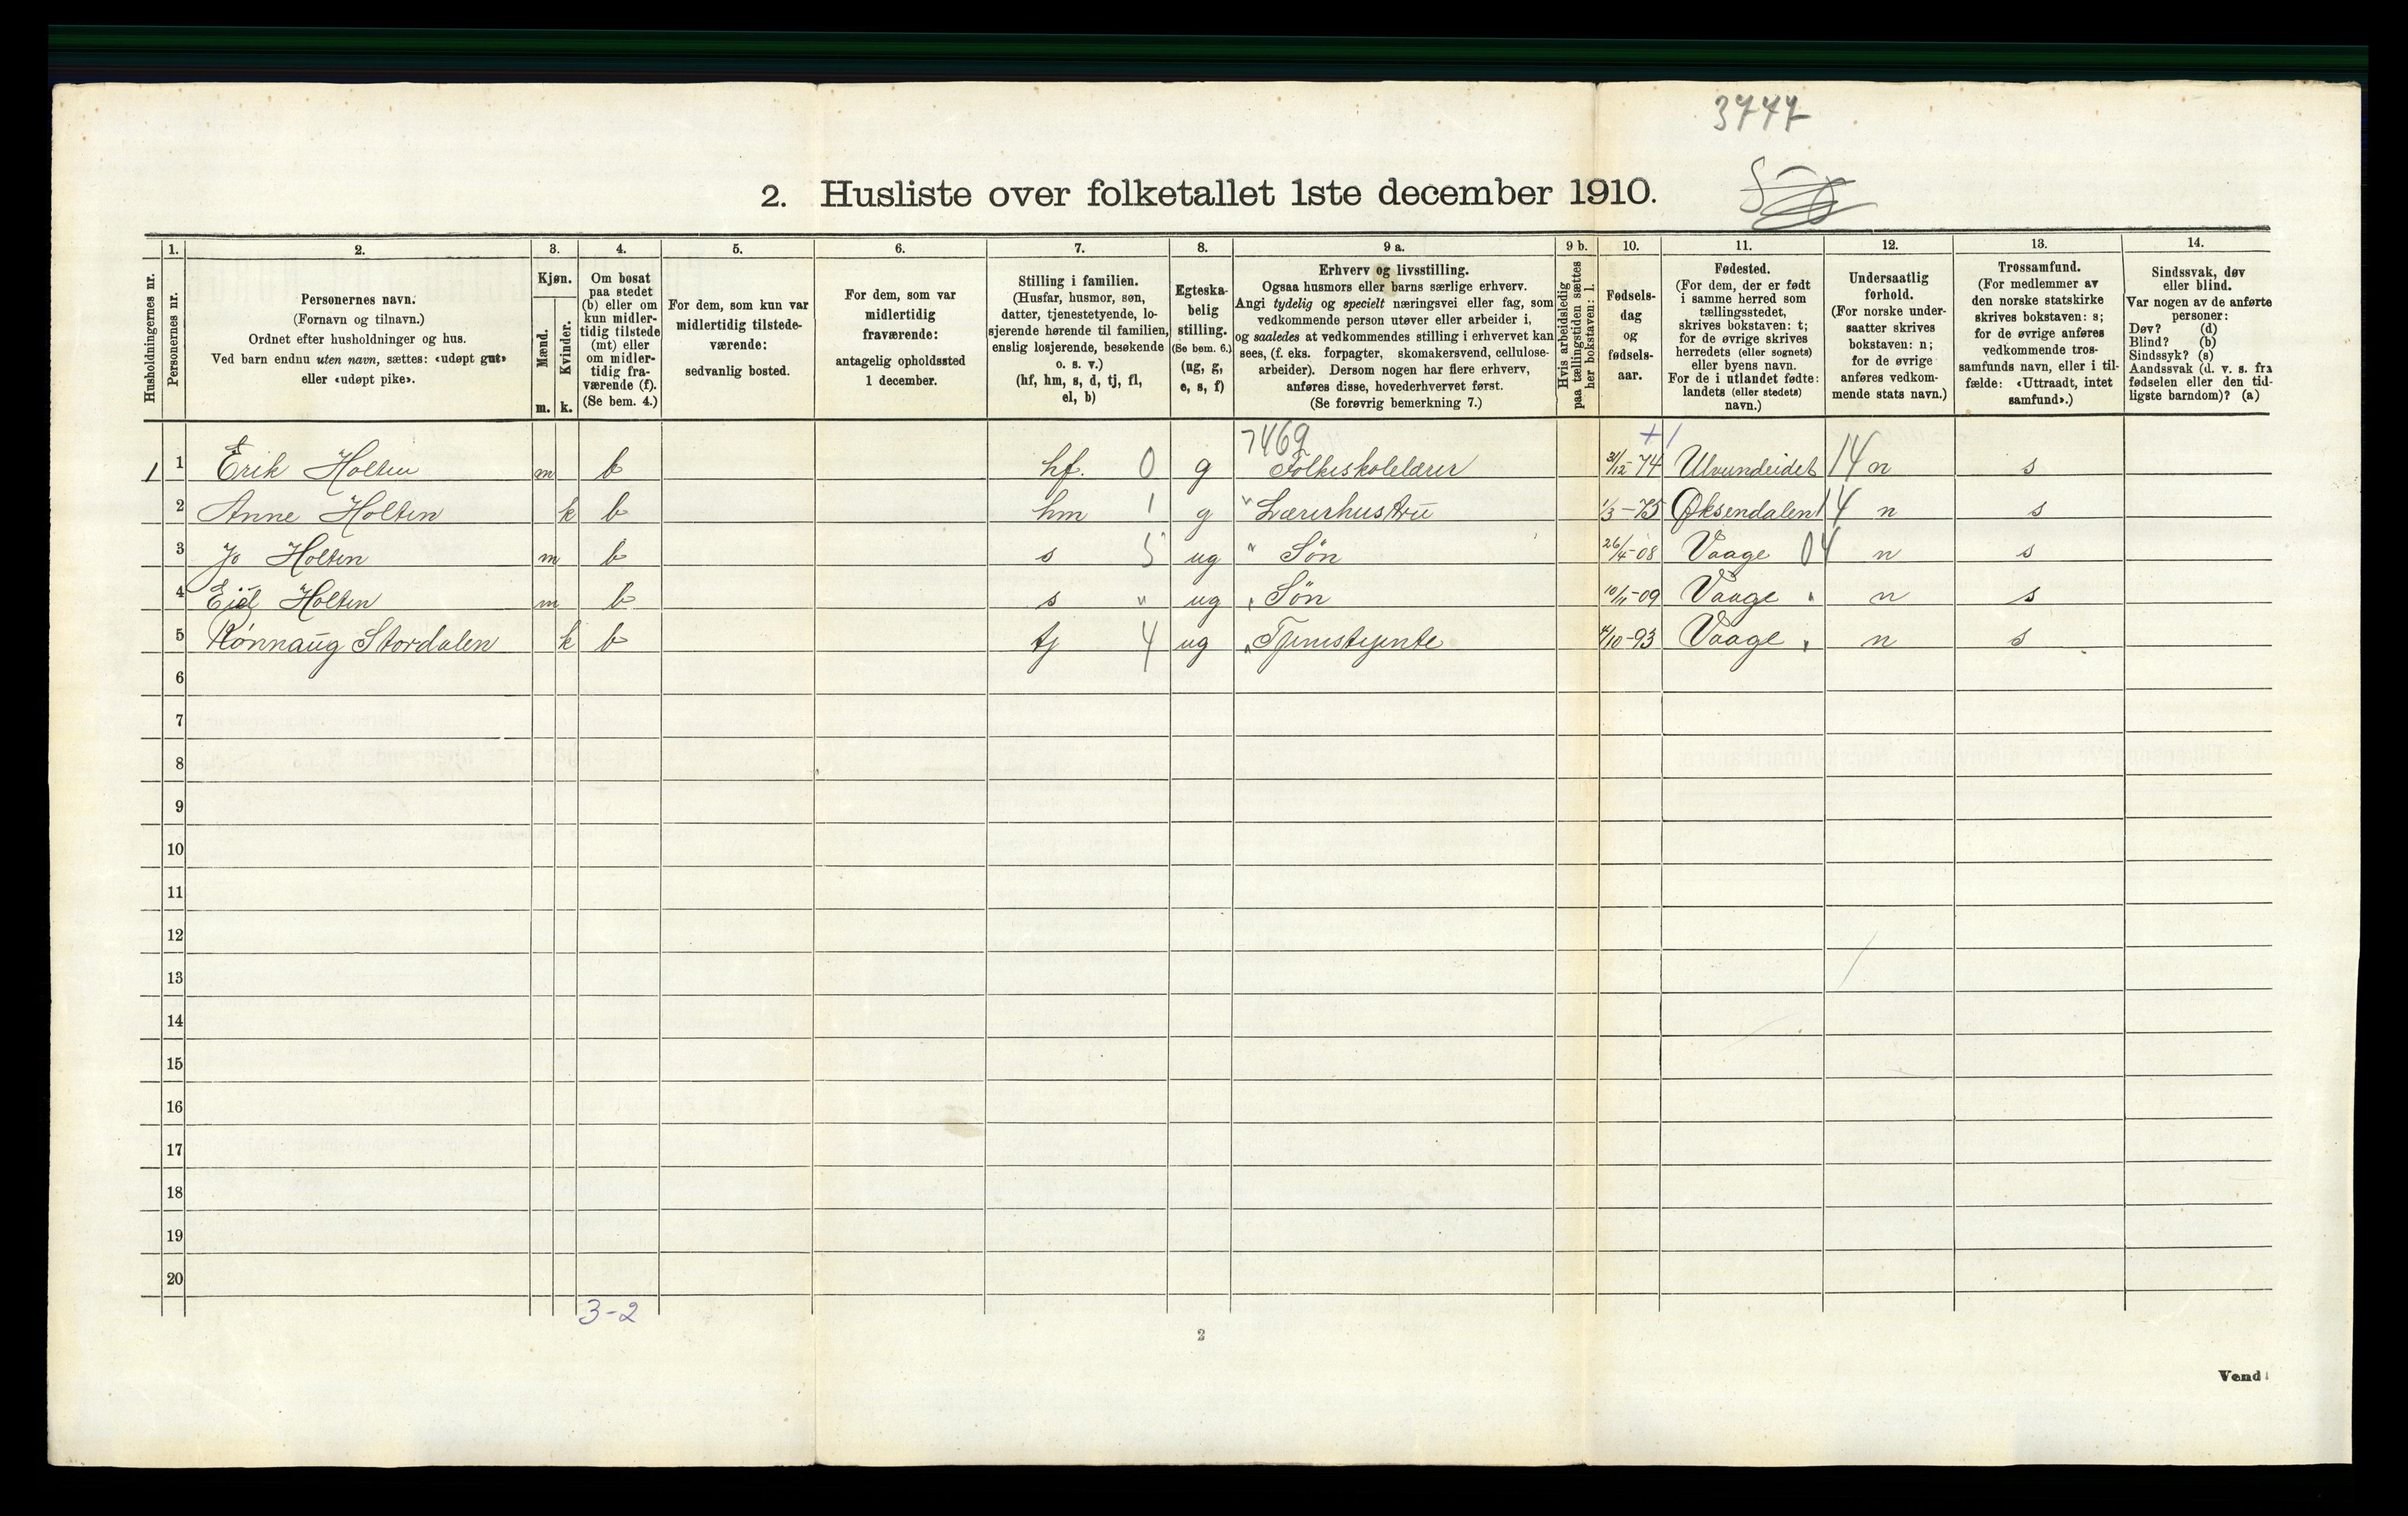 3747
2. Husliste over folketallet 1ste december 1910.
Husholdningernes nr.
1.
Personernes nr.
2.
Personernes navn.
(Fornavn og tilnavn.)
Ordnet efter husholdninger og hus.
Ved barn endnu uten navn, sættes: «udøpt gut»
eller «udøpt pike».
3.
Kjøn.
Mænd.
Kvinder.
m. k.
4.
Om bosat
paa stedet
(b) eller om
kun midler-
tidig tilstede
(mt) eller
om midler-
tidig fra-
værende (f).
(Se bem. 4.)
5.
For dem, som kun var
midlertidig tilstede-
værende:
sedvanlig bosted.
6.
For dem, som var
midlertidig
fraværende:
antagelig opholdssted
1 december.
7.
Stilling i familien.
(Husfar, husmor, søn,
datter, tjenestetyende, lo-
sjerende hørende til familien,
enslig losjerende, besøkende
o. s. v.)
(hf, hm, s, d, tj, fl,
el, b)
8.
Egteska-
belig
stilling.
(Se bem. 6.)
(ug, g,
e, s, f)
9 a.
Erhverv og livsstilling.
Ogsaa husmors eller barns særlige erhverv.
Angi tydelig og specielt næringsvei eller fag, som
vedkommende person utøver eller arbeider i,
og saaledes at vedkommendes stilling i erhvervet kan
sees, (f. eks. forpagter, skomakersvend, cellulose-
arbeider). Dersom nogen har flere erhverv,
anføres disse, hovederhvervet først.
(Se forøvrig bemerkning 7.)
9 b.
Hvis arbeidsledig
paa tællingstiden sættes
her bokstaven: l.
10.
Fødsels-
dag
og
fødsels-
aar.
11.
Fødested.
(For dem, der er født
i samme herred som
tællingsstedet,
skrives bokstaven: t;
for de øvrige skrives
herredets (eller sognets)
eller byens navn.
For de i utlandet fødte:
landets (eller stedets)
navn.)
12.
Undersaatlig
forhold.
(For norske under-
saatter skrives
bokstaven: n;
for de øvrige
anføres vedkom-
mende stats navn.)
13.
Trossamfund.
(For medlemmer av
den norske statskirke
skrives bokstaven: s;
for de øvrige anføres
vedkommende tros-
samfunds navn, eller i til-
fælde: «Uttraadt, intet
samfund».)
14.
Sindssvak, døv
eller blind.
Var nogen av de anførte
personer:
Døv? (d)
Blind? (b)
Sindssyk? (s)
Aandssvak (d. v. s. fra
fødselen eller den tid-
ligste barndom)? (a)
7469 +1
1 1 Erik Holten m b hf. 0 g Folkeskolelærer 31/12-74 Ulvundeidet 14 n s
2 Anne Holten k b hm 1 g " Lærerhustru 1/3-75 Øksendalen 14 n s
3 Jo Holten m b s 5 ug " Søn 26/4-08 Vaage 04 n s
4 Eiel Holten m b s " ug " Søn 10/11-09 Vaage " n s
5 Rönnaug Stordalen k b tj 4 ug " Tjenestejente 4/10-93 Vaage " n s
6
7
8
9
10
11
12
13
14
15
16
17
18
19
20
3-2
2
Vend!